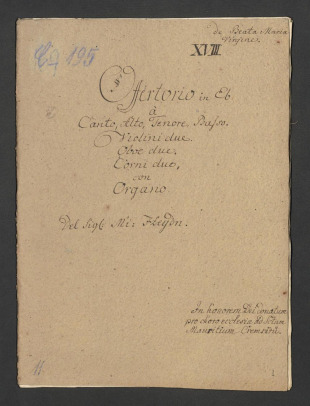 de Beata Maria
Virgine.
XLIII
195
Offertorio in Eb.
à
Canto, Alto, Tenore, Basso.
Violini due.
Oboe due.
Corni due,
con
Organo.
Del Sigl. Mi: Haydn.
In honorem Dei
pro choro ecclesiae ad